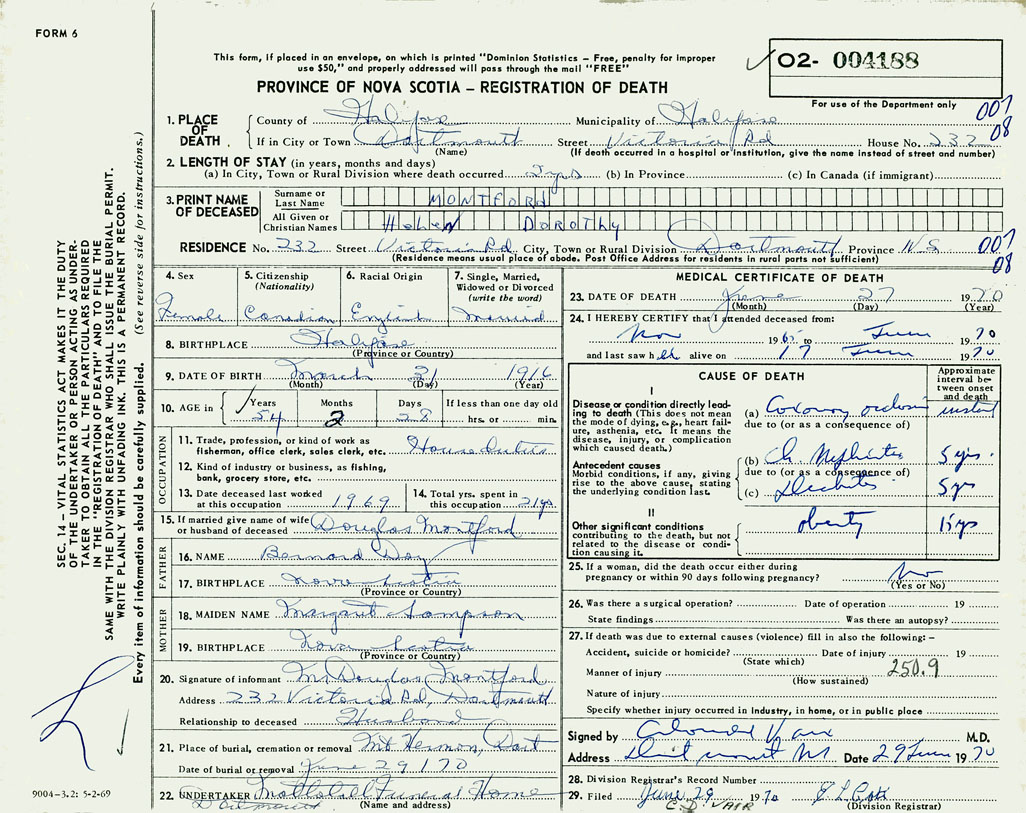 FORM 6
This form, if placed in an envelope, on which is printed "Dominion Statistics – Free, penalty for improper
use $50," and properly addressed will pass through the mail "FREE"
O2- 004188
PROVINCE OF NOVA SCOTIA – REGISTRATION OF DEATH
For use of the Department only
007
08
1. PLACE OF DEATH County of Halifax Municipality of Halifax
If in City or Town Dartmouth Street Victoria Rd House No. 232
(Name) (If death occurred in a hospital or institution, give the name instead of street and number)
2. LENGTH OF STAY (in years, months and days)
(a) In City, Town or Rural Division where death occurred yrs (b) In Province (c) In Canada (if immigrant)
3. PRINT NAME OF DECEASED
Surname or Last Name MONTFORD
All Given or Christian Names HELEN DOROTHY
RESIDENCE No. 232 Street Victoria Rd. City, Town or Rural Division Dartmouth Province N.S.
(Residence means usual place of abode. Post Office Address for residents in rural parts not sufficient)
007
08
4. Sex Female
5. Citizenship (Nationality) Canadian
6. Racial Origin English
7. Single, Married, Widowed or Divorced (write the word) Married
8. BIRTHPLACE Halifax
(Province or Country)
9. DATE OF BIRTH March 31 1916
(Month) (Day) (Year)
10. AGE in Years 54 Months 2 Days 28 If less than one day old hrs. or min.
OCCUPATION
11. Trade, profession, or kind of work as
fisherman, office clerk, sales clerk, etc. Housewife
12. Kind of industry or business, as fishing,
bank, grocery store, etc.
13. Date deceased last worked at this occupation 1969
14. Total yrs. spent in this occupation yrs
15. If married give name of wife or husband of deceased Douglas Montford
FATHER
16. NAME Bernard Day
17. BIRTHPLACE Nova Scotia
(Province or Country)
MOTHER
18. MAIDEN NAME Margaret Sampson
19. BIRTHPLACE Nova Scotia
(Province or Country)
20. Signature of informant M. Douglas Montford
Address 232 Victoria Rd, Dartmouth
Relationship to deceased Husband
21. Place of burial, cremation or removal Mt Hermon, Dart
Date of burial or removal June 29/70
22. UNDERTAKER Funeral Home
Dartmouth (Name and address)
MEDICAL CERTIFICATE OF DEATH
23. DATE OF DEATH June 27 1970
(Month) (Day)
24. I HEREBY CERTIFY that I attended deceased from:
Nov 1965 to June 1970
and last saw her alive on 17 June 1970
CAUSE OF DEATH
Approximate interval between onset and death
I
Disease or condition directly leading to death (This does not mean the mode of dying, e.g., heart failure, asthenia, etc. It means the disease, injury, or complication which caused death.)
(a) Coronary occlusion instant
due to (or as a consequence of)
Antecedent causes
Morbid conditions, if any, giving rise to the above cause, stating the underlying condition last.
(b) Ch Nephritis 5 yrs.
due to (or as a consequence of)
(c) Diabetes 5 yrs
II
Other significant conditions
contributing to the death, but not related to the disease or condition causing it.
obesity 15 yrs
25. If a woman, did the death occur either during
pregnancy or within 90 days following pregnancy? No
(Yes or No)
26. Was there a surgical operation? Date of operation 19
State findings Was there an autopsy?
27. If death was due to external causes (violence) fill in also the following: –
Accident, suicide or homicide? Date of injury 19
(State which)
Manner of injury 250.9
(How sustained)
Nature of injury
Specify whether injury occurred in industry, in home, or in public place
Signed by M.D.
Address Dartmouth NS Date 29 June 1970
28. Division Registrar's Record Number
29. Filed June 29 1970
C.D. VAIR (Division Registrar)
SEC. 14 – VITAL STATISTICS ACT MAKES IT THE DUTY
OF THE UNDERTAKER OR PERSON ACTING AS UNDERTAKER TO OBTAIN ALL THE PARTICULARS REQUIRED
IN THE "REGISTRATION OF DEATH" AND TO FILE THE
SAME WITH THE DIVISION REGISTRAR WHO SHALL ISSUE THE BURIAL PERMIT.
WRITE PLAINLY WITH UNFADING INK. THIS IS A PERMANENT RECORD.
Every item of information should be carefully supplied. (See reverse side for instructions.)
9004-3.2: 5-2-69